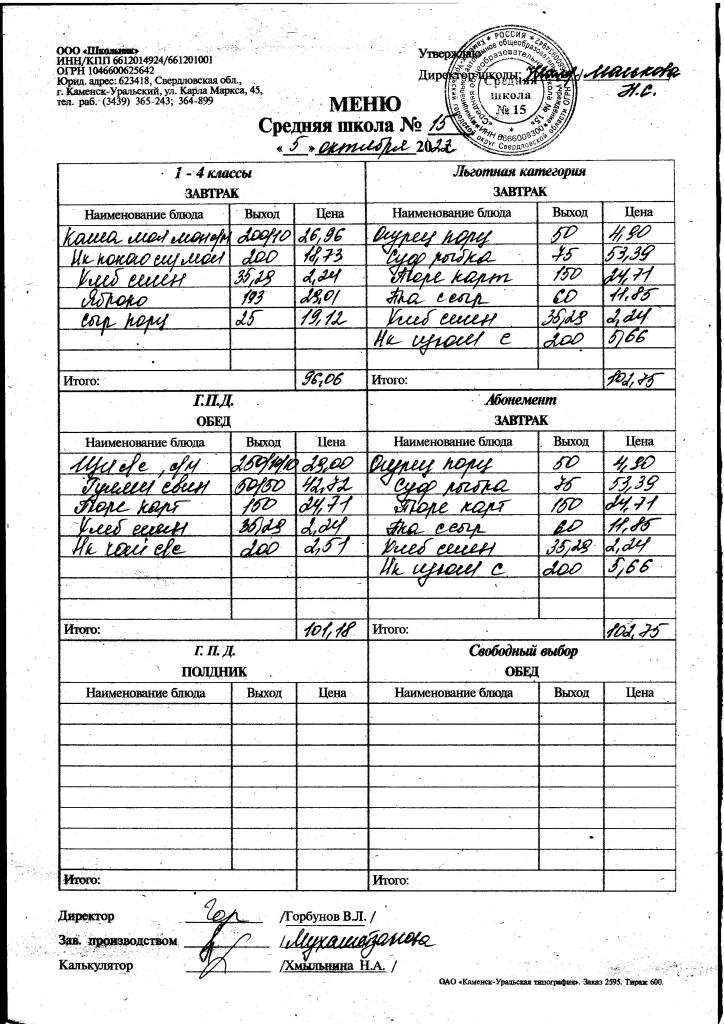 ООО «Школьник»
ИНН/КПП 6612014924/661201001
ОГРН 1046600625642
Юрид. адрес: 623418, Свердловская обл.,
г. Каменск-Уральский, ул. Карла Маркса, 45,
тел. раб. (3439) 365-243; 364-899
Утверждаю
Директор школы: Малькова Н.С.
РОССИЯ
Средняя школа № 15
МЕНЮ
Средняя школа № 15
« 5 » октября 2022
1 - 4 классы
ЗАВТРАК
Наименование блюда Выход Цена
Каша мол 200/10 26,96
Нк какао су мол 200 18,73
Хлеб 35,29 2,24
Яблоко 193 29,01
Сыр порц 25 19,12
Итого: 96,06
Льготная категория
ЗАВТРАК
Наименование блюда Выход Цена
Огурец порц 50 4,90
Суф рыбка 75 53,39
Пюре карт 150 24,71
Пка с сыр 60 11,85
Хлеб 35,29 2,24
Нк изюм с 200 5,66
Итого: 102,75
Г.П.Д.
ОБЕД
Наименование блюда Выход Цена
Щи св с, см 250/10/10 29,00
Гуляш свин 50/50 42,72
Пюре карт 150 24,71
Хлеб 35,29 2,24
Нк чай с/с 200 2,51
Итого: 101,18
Абонемент
ЗАВТРАК
Наименование блюда Выход Цена
Огурец порц 50 4,90
Суф рыбка 75 53,39
Пюре карт 150 24,71
Пка с сыр 60 11,85
Хлеб 35,29 2,24
Нк изюм с 200 5,66
Итого: 102,75
Г. П. Д.
ПОЛДНИК
Наименование блюда Выход Цена
Итого:
Свободный выбор
ОБЕД
Наименование блюда Выход Цена
Итого:
Директор /Горбунов В.Л. /
Зав. производством /Мухаматзанова
Калькулятор /Хмыльнина Н.А. /
ОАО «Каменск-Уральская типография». Заказ 2595. Тираж 600.